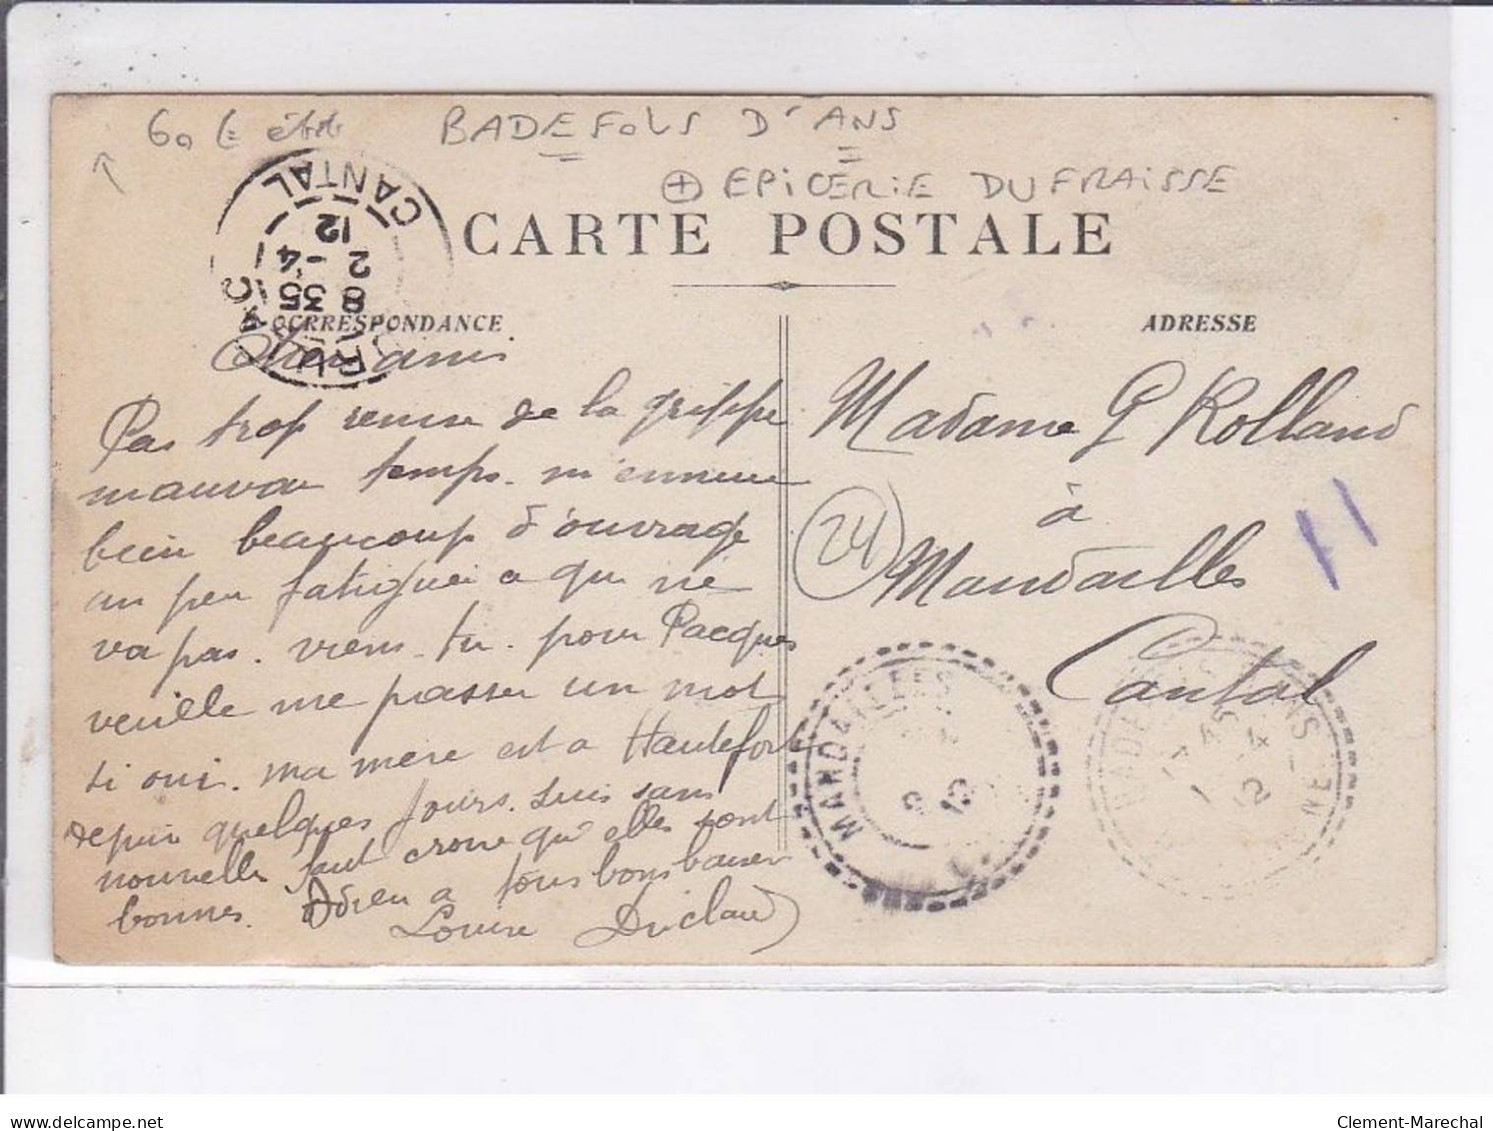 BADEFOLS D'ANS
+ EPICERIE DUFRAISSE
CARTE POSTALE
CANTAL
12
2 -4
8 35
CORRESPONDANCE
ADRESSE
Pas trop remise de la grippe
mauvai temps. m'ennuie
bien beaucoup d'ouvrage
un peu fatiguei a qui ne
va pas. viens-tu. pour Pacques
veuille me passer un mot
si oui. ma mere est a Hautefort
depuis quelques jours. suis sans
nouvelle faut croire qu'elles sont
bonnes. Adieu a tous bons baiser
Louise Duclaud
Madame G Rolland
à
24
Mandailles
Cantal
MANDAILLES